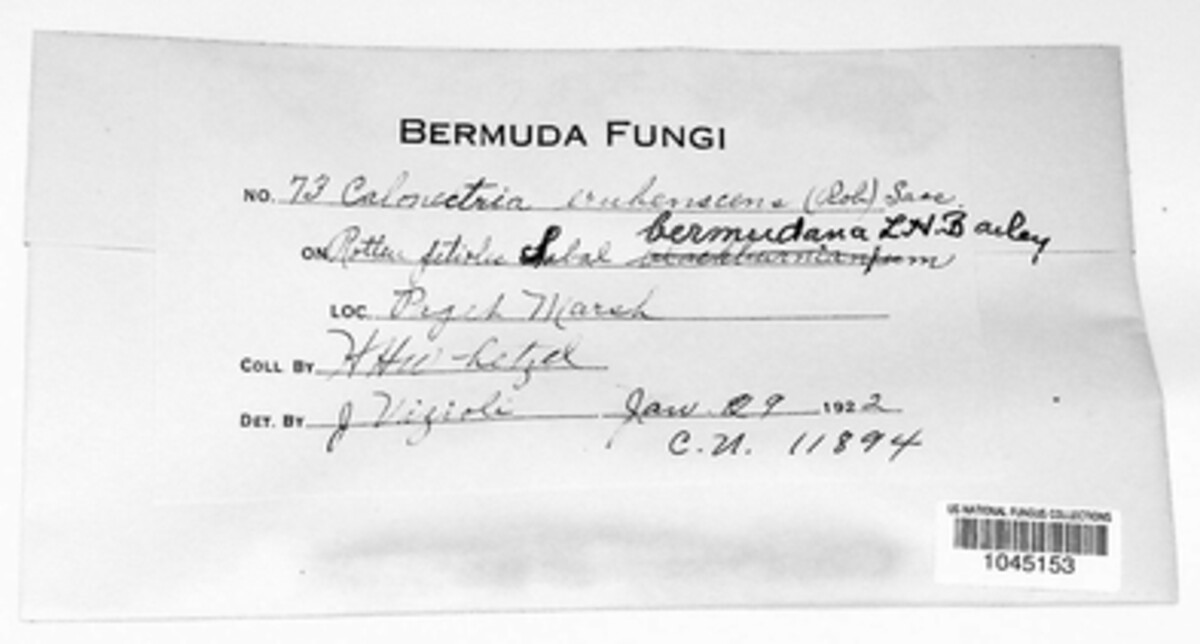 BERMUDA FUNGI
NO. 73 Calonectria erubenscens (Rob) Sacc.
bermudana L.H. Bailey
ON Rotten petioles Sabal blackburnianum
LOC. Paget Marsh
COLL BY H H Whetzel
DET. BY J Vizioli Jan. 29 1922
C.U. 11894
US NATIONAL FUNGUS COLLECTIONS
1045153